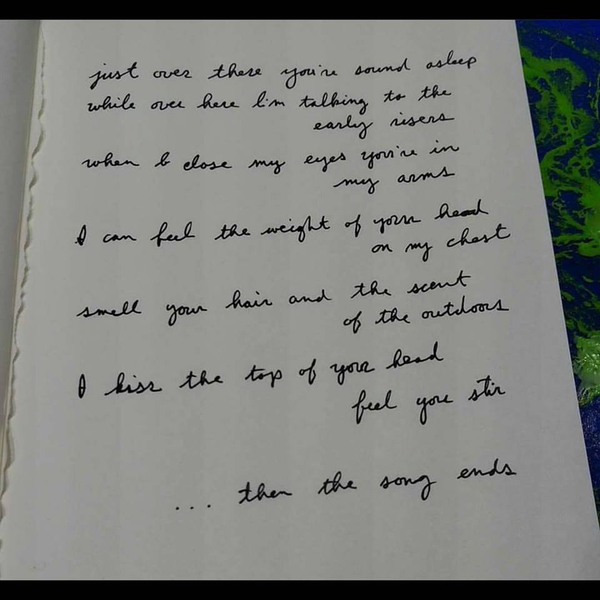 just over there you're sound asleep
while over here I'm talking to the
early risers
when I close my eyes you're in
my arms
I can feel the weight of your head
on my chest
smell your hair and the scent
of the outdoors
I kiss the top of your head
feel you stir
... then the song ends